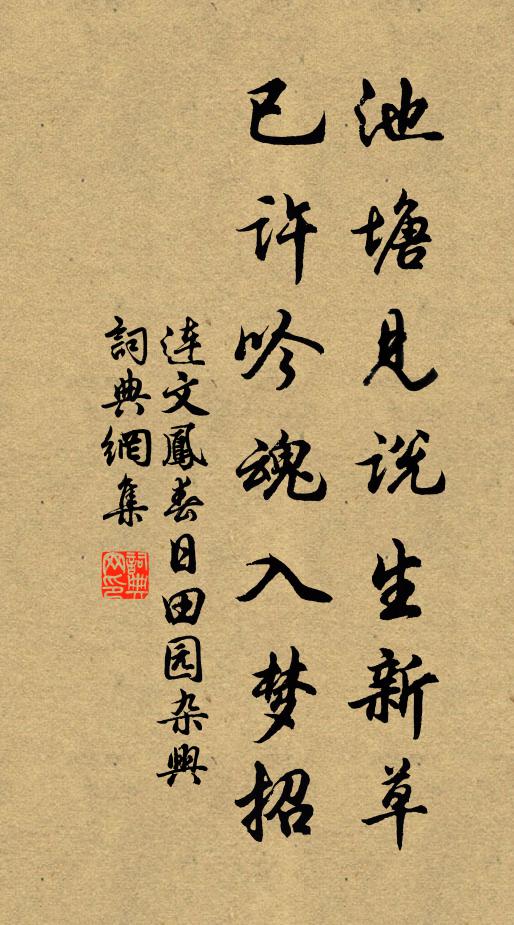 池塘见说生新草
已许吟魂入梦招
连文鳳春日田园杂興
詞典網集
詞典网印